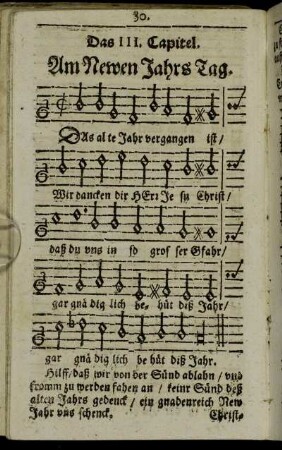 30.
Das III. Capitel.
Am Newen Jahrs Tag.
DAs al te Jahr vergangen ist/
Wir dancken dir HErr Je su Christ/
daß du vns in so gros ser Gfahr/
gar gnä dig lich be, hüt diß Jahr/
gar gnä dig lich be hüt diß Jahr.
Hilff/daß wir von der Sünd ablahn/ vnd
fromm zu werden fahen an/ keinr Sünd deß
alten Jahrs gedenck/ ein gnadenreich New
Jahr vns schenck. Christ-